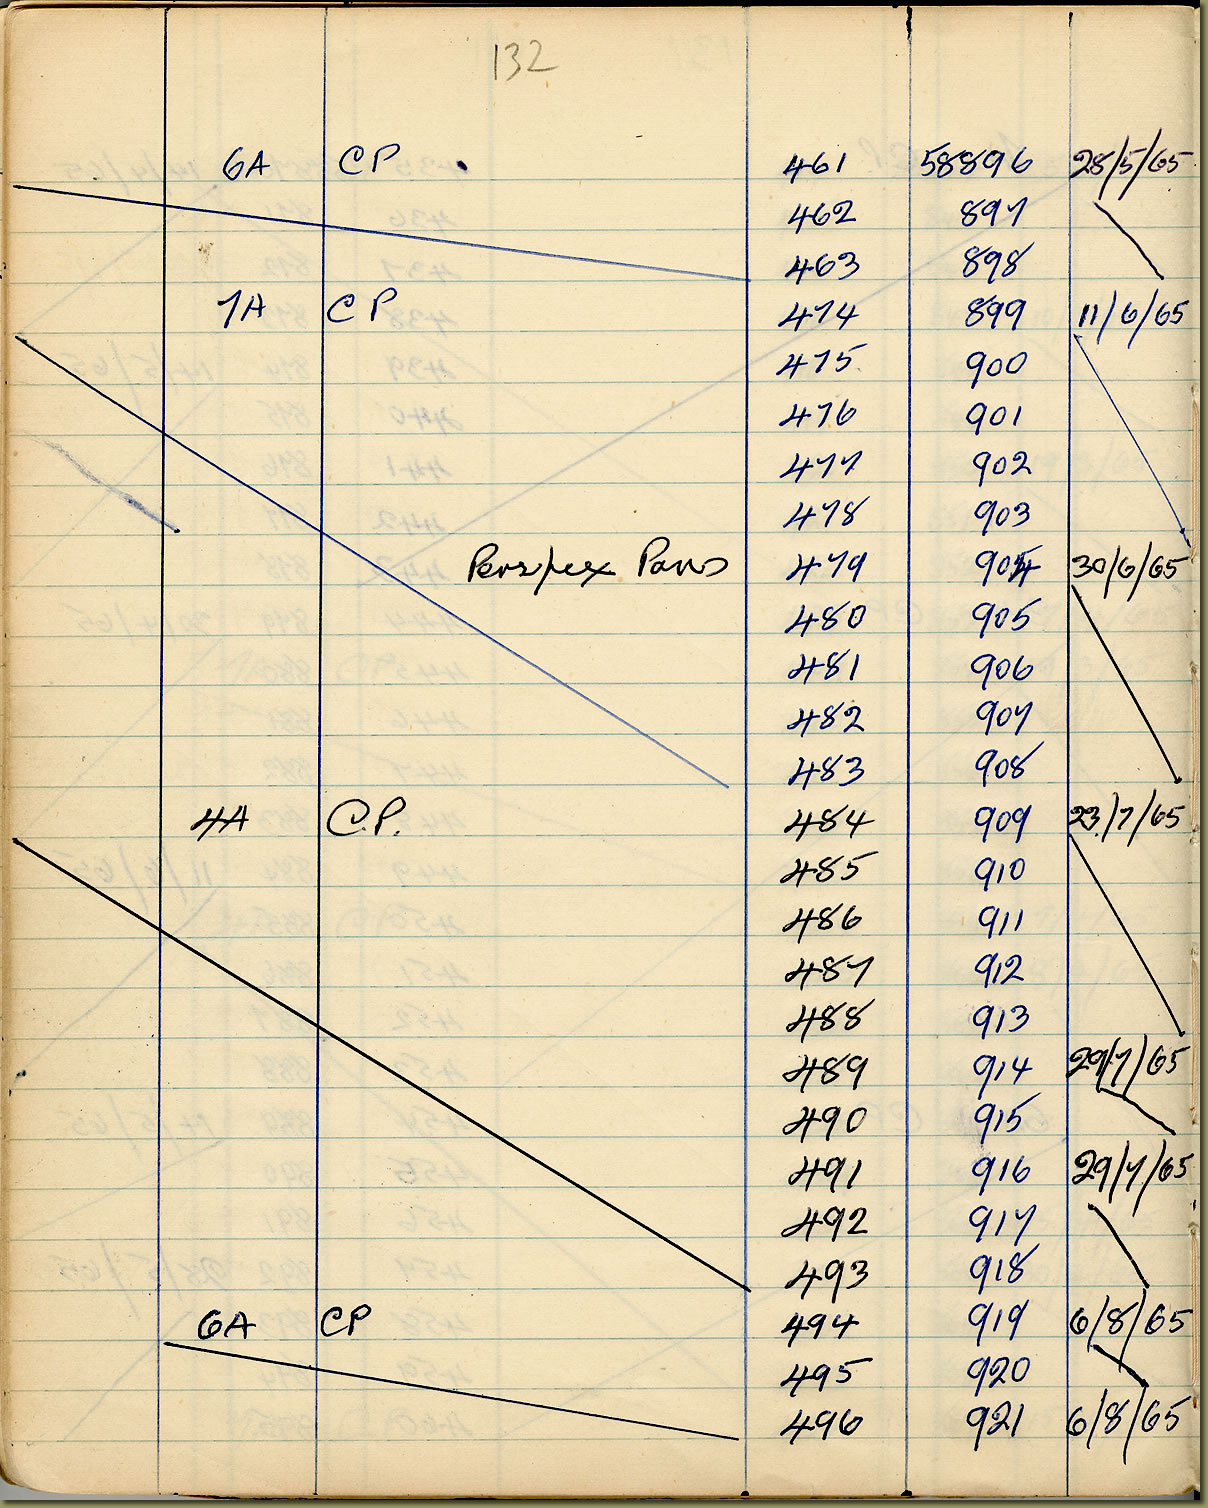 132
6A CP 461 58896 28/5/65
462 897
463 898
7A CP 474 899 11/6/65
475 900
476 901
477 902
478 903
Perspex Pans 479 904 30/6/65
480 905
481 906
482 907
483 908
4A C.P. 484 909 23/7/65
485 910
486 911
487 912
488 913
489 914 29/7/65
490 915
491 916 29/7/65
492 917
493 918
6A CP 494 919 6/8/65
495 920
496 921 6/8/65